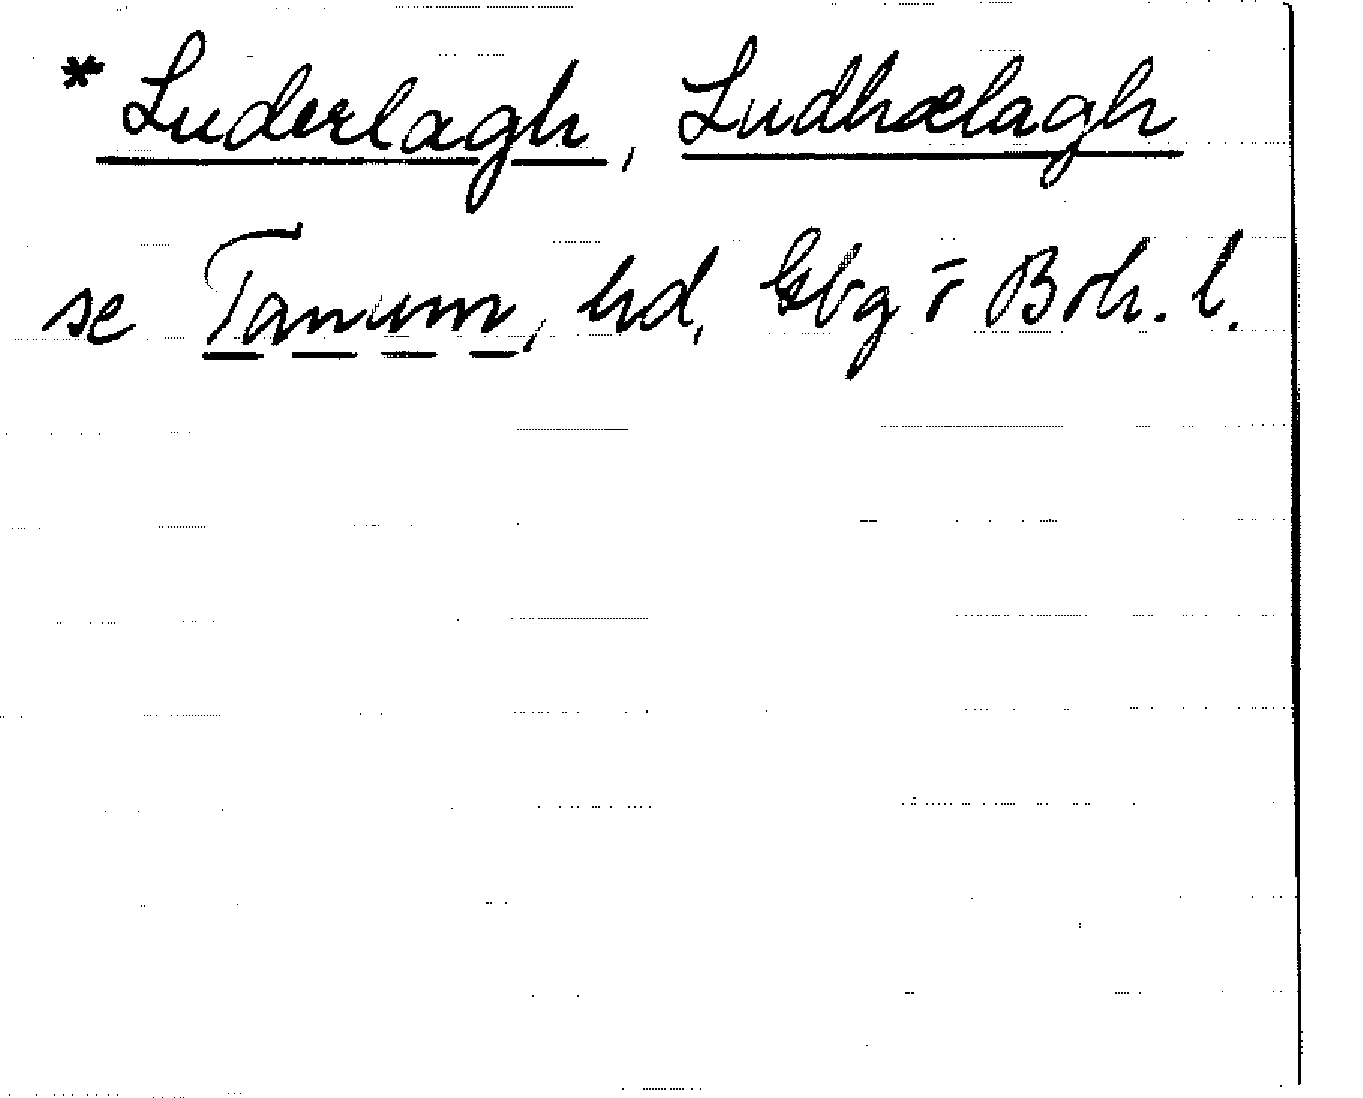 * Luderlagh, Ludhælagh
se Tanum, hd, Gbg o Boh. l.